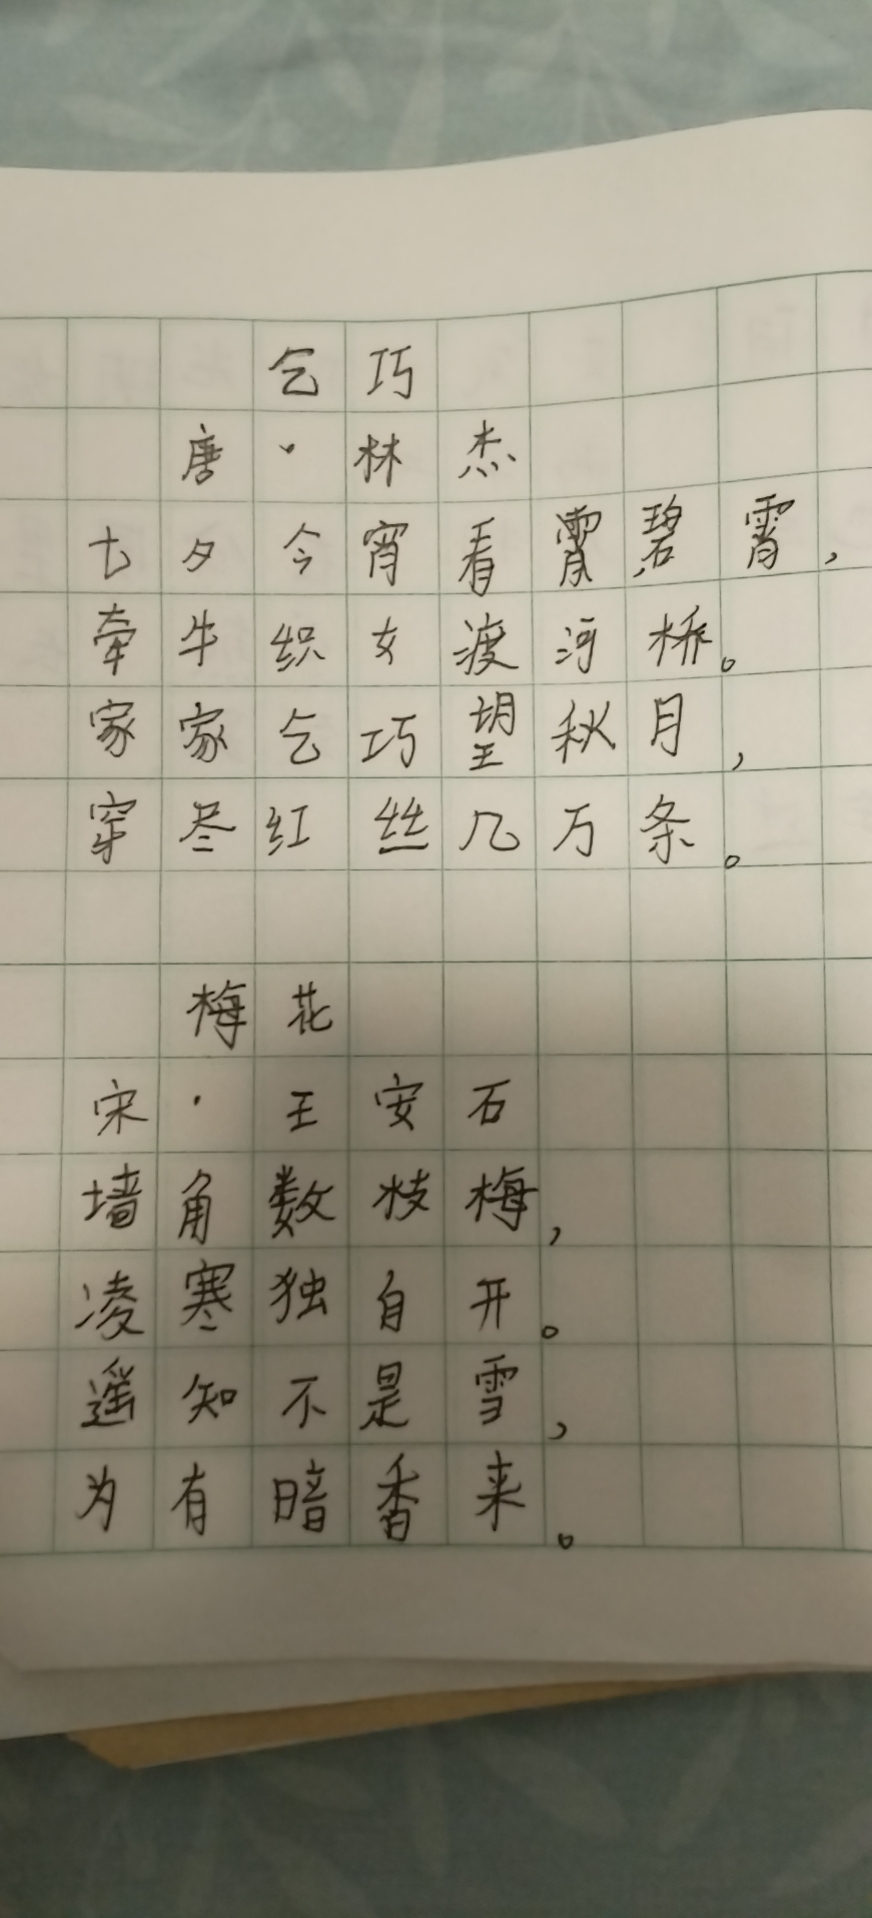 乞巧
唐·林杰
七夕今宵看碧霄，
牵牛织女渡河桥。
家家乞巧望秋月，
穿尽红丝几万条。
梅花
宋·王安石
墙角数枝梅，
凌寒独自开。
遥知不是雪，
为有暗香来。